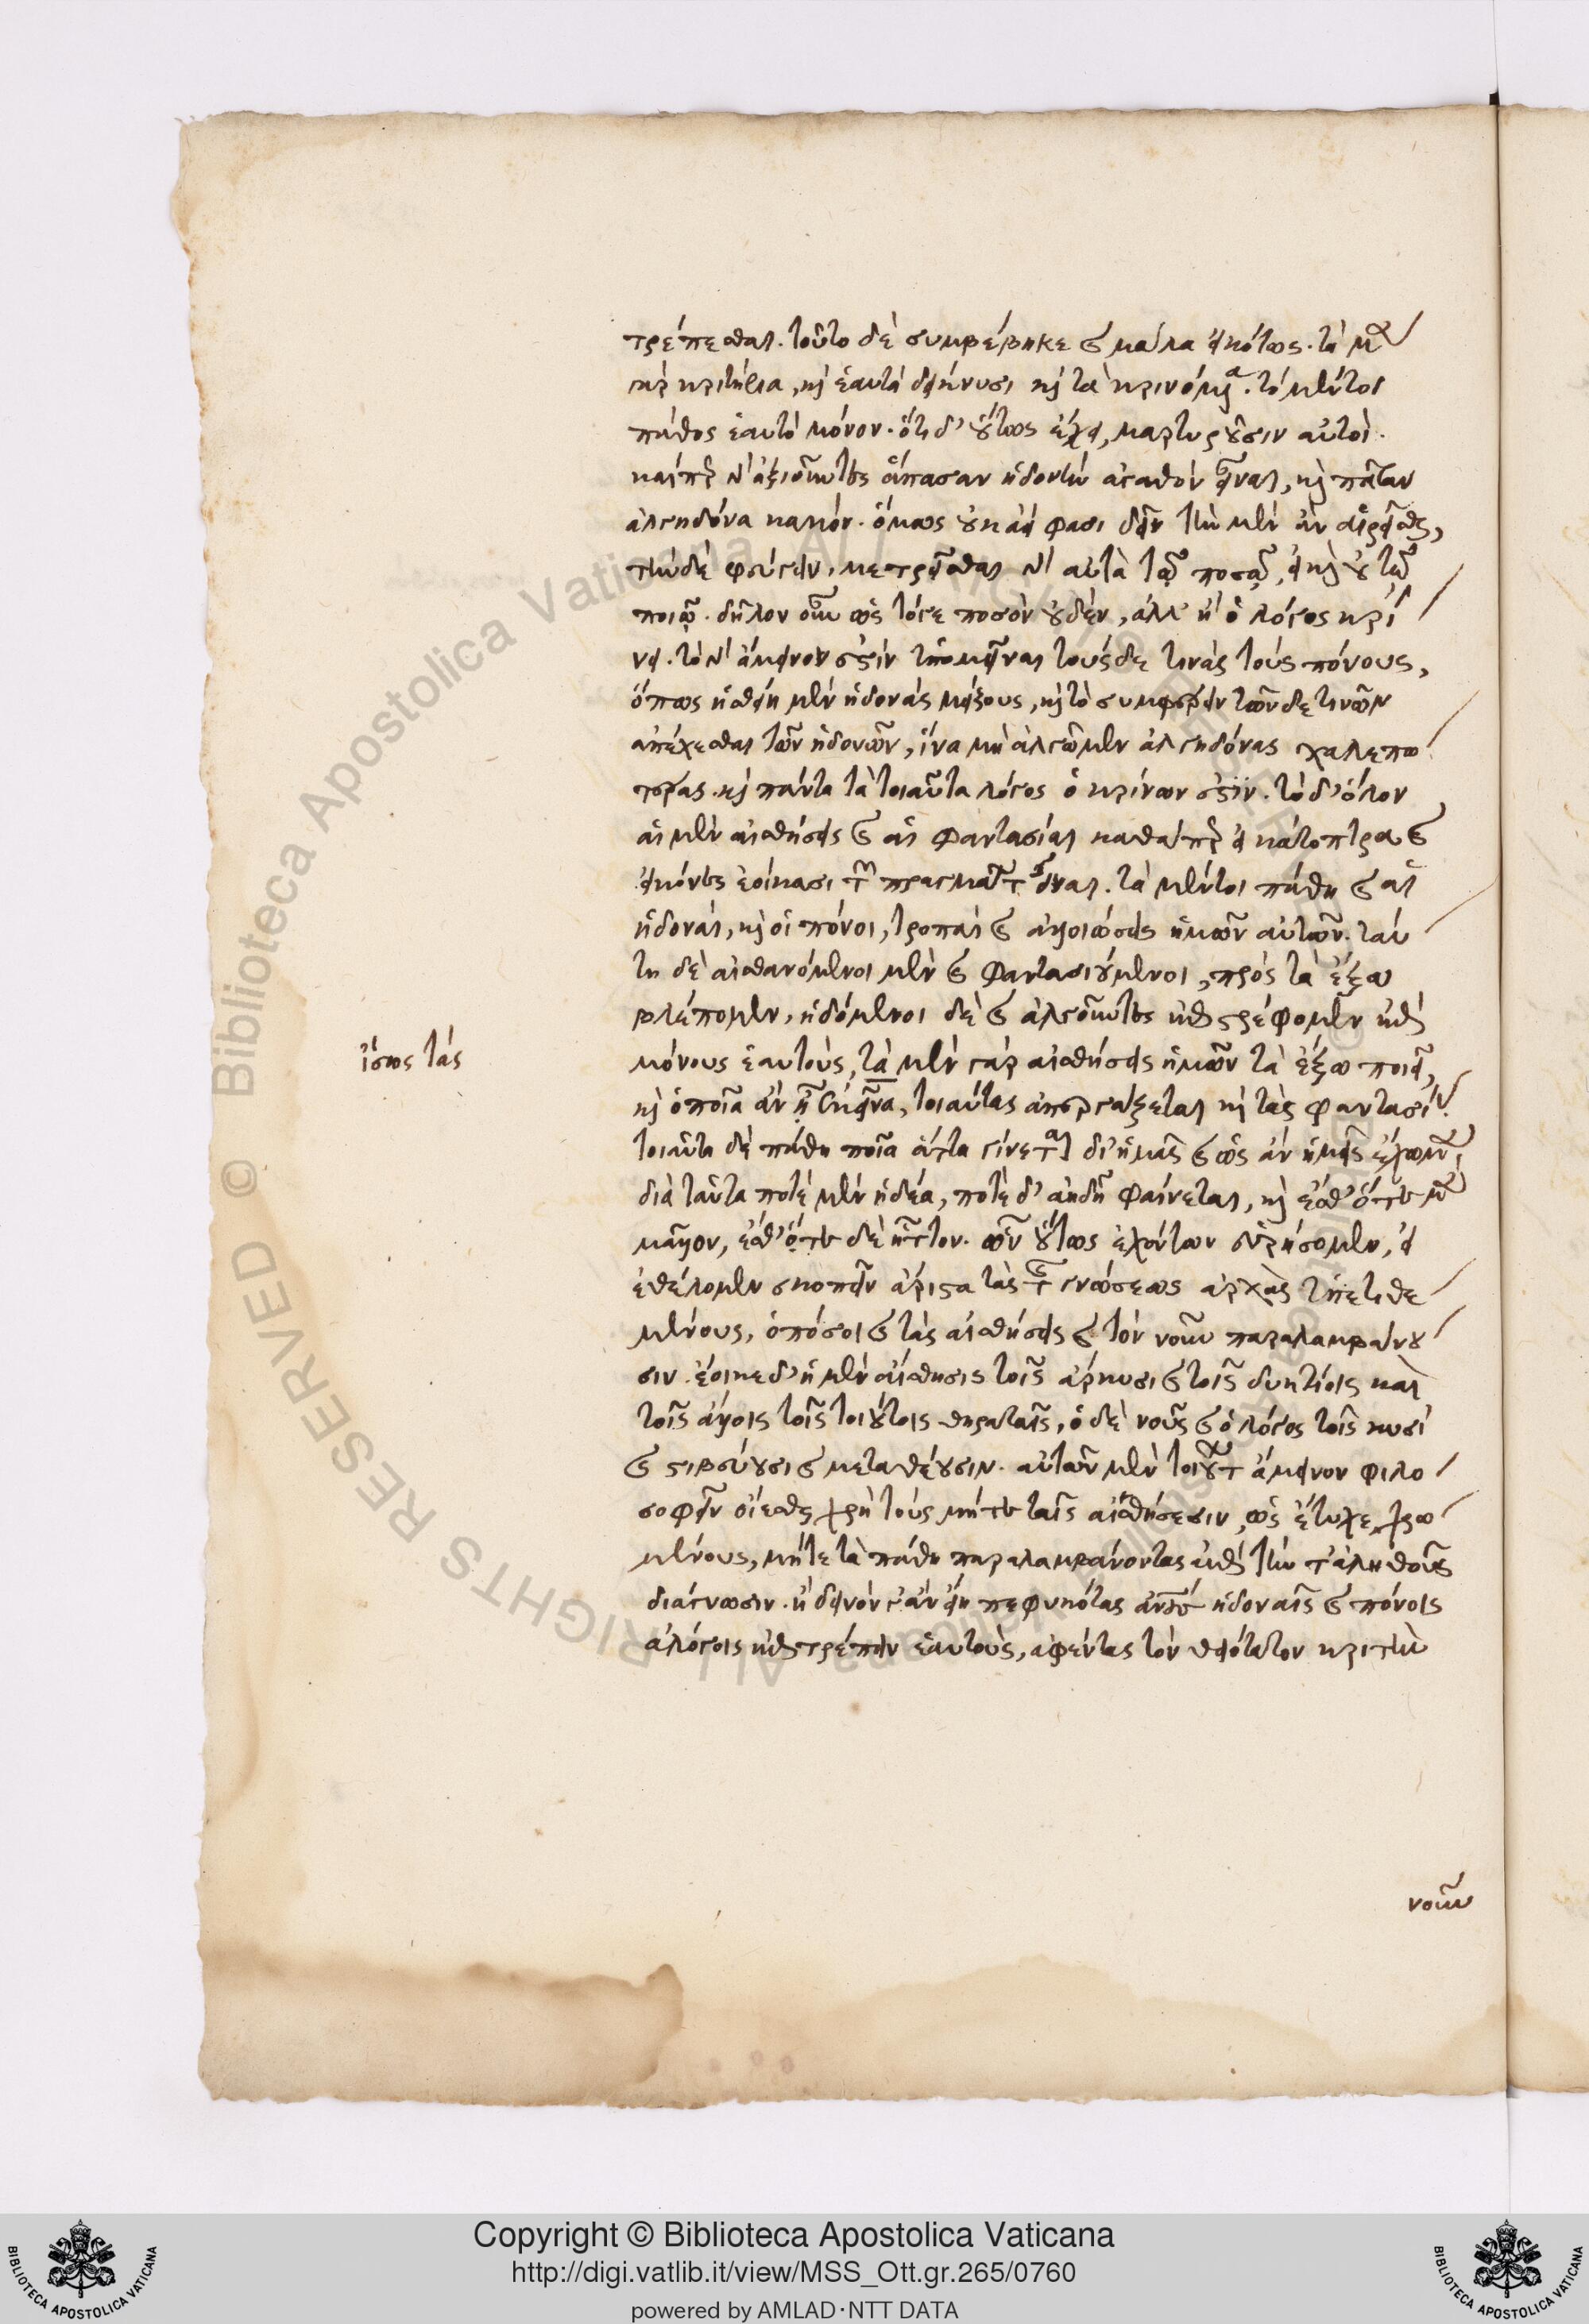 τρέπεσθαι. τοῦτο δὲ συμβέβηκε καὶ μάλα εἰκότως. τὰ μὲν
γὰρ κριτήρια, καὶ ἑαυτὰ δείκνυσι καὶ τὰ κρινόμενα. τὸ μέντοι
πάθος ἑαυτὸ μόνον. ὅτι δ' οὕτως ἔχει, μαρτυροῦσιν αὐτοί.
καίπερ γὰρ ἀξιοῦντες ἅπασαν ἡδονὴν ἀγαθὸν εἶναι, καὶ πᾶσαν
ἀλγηδόνα κακόν. ὅμως οὐκ ἀεί φασι δεῖν τὴν μὲν αἱρεῖσθαι,
τὴν δὲ φεύγειν. μετρεῖσθαι γὰρ αὐτὰ τῷ ποσῷ, καὶ οὐ τῷ
ποιῷ. δῆλον οὖν ὡς τό γε ποσὸν οὐδὲν, ἀλλ' ἢ ὁ λόγος κρί
νει. τὸ γὰρ ἄμεινον ἐστὶν ὑπομεῖναι τούσδε τινὰς τοὺς πόνους,
ὅπως ἡσθείημεν ἡδονὰς μείζους, καὶ τὸ συμφέρειν τῶνδε τινῶν
ἀπέχεσθαι τῶν ἡδονῶν, ἵνα μὴ ἀλγῶμεν ἀλγηδόνας χαλεπω
τέρας. καὶ πάντα τὰ τοιαῦτα λόγος ὁ κρίνων ἐστίν. τὸ δ' ὅλον
αἱ μὲν αἰσθήσεις καὶ αἱ φαντασίαι καθάπερ κάτοπτρα καὶ
εἰκόνες ἐοίκασι τῶν πραγμάτων εἶναι. τὰ μέντοι πάθη καὶ αἱ
ἡδοναὶ, καὶ οἱ πόνοι, τροπαὶ καὶ ἀλλοιώσεις ἡμῶν αὐτῶν. ταύ
τῃ δὲ αἰσθανόμενοι μὲν καὶ φαντασιούμενοι, πρὸς τὰ ἔξω
βλέπομεν. ἡδόμενοι δὲ καὶ ἀλγοῦντες ἐπιστρέφομεν ἐπὶ
μόνους ἑαυτούς, τὰ μὲν γὰρ αἰσθήσεις ἡμῶν τὰ ἔξω ποιεῖ,
ἴσως τὰς
καὶ ὁποῖα ἂν ᾖ κἀκεῖνα, τοιαύτας ἀπεργάζεται καὶ τὰς φαντασίας.
τοιαῦτα δὲ πάθη ποῖα ἄττα γίνεται δι' ἡμᾶς καὶ ὡς ἂν ἡμεῖς ἔχωμεν.
διὰ ταῦτα ποτὲ μὲν ἡδέα, ποτὲ δ' ἀηδῆ φαίνεται, καὶ ἔσθ' ὅτε μὲν
μᾶλλον, ἔσθ' ὅτε δὲ ἧττον. ὧν οὕτως ἐχόντων εὑρήσομεν, εἰ
ἐθέλομεν σκοπεῖν ἄριστα τὰς τῆς γνώσεως ἀρχὰς ὑποτιθε
μένους, ὁπόσοι καὶ τὰς αἰσθήσεις καὶ τὸν νοῦν παραλαμβάνου
σιν. ἔοικε δ' ἡ μὲν αἴσθησις τοῖς ἄρκυσι καὶ τοῖς δικτύοις καὶ
τοῖς ἄλλοις τοῖς τοιούτοις θηράτροις, ὁ δὲ νοῦς καὶ ὁ λόγος τοῖς κυσὶ
καὶ στιβεύουσι καὶ μεταθέουσιν. αὐτῶν μὲν τοιούτων ἄμεινον φιλο
σοφεῖν οἴεσθαι χρὴ τοὺς μήτε ταῖς αἰσθήσεσιν, ὡς ἔτυχε, χρω
μένους, μήτε τὰ πάθη παραλαμβάνοντας ἐπὶ τὴν τἀληθοῦς
διάγνωσιν. ἢ δεινὸν γ' ἂν εἴη πεφυκότας ἀνθρώπους ἡδοναῖς καὶ πόνοις
ἀλόγοις ἐπιτρέπειν ἑαυτούς, ἀφέντας τὸν θειότατον κριτὴν
νοῦν
Copyright © Biblioteca Apostolica Vaticana
http://digi.vatlib.it/view/MSS_Ott.gr.265/0760
powered by AMLAD·NTT DATA
BIBLIOTECA APOSTOLICA VATICANA
BIBLIOTECA APOSTOLICA VATICANA
© Biblioteca Apostolica Vaticana ALL RIGHTS RESERVED